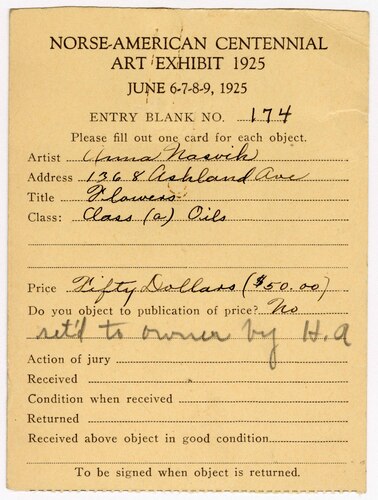 NORSE-AMERICAN CENTENNIAL
ART EXHIBIT 1925
JUNE 6-7-8-9, 1925
ENTRY BLANK NO. 174
Please fill out one card for each object.
Artist Anna Nasvik
Address 1368 Ashland Ave
Title Flowers
Class: Class (a) Oils
Price Fifty Dollars ($50.00)
Do you object to publication of price? No
ret'd to owner by H.A
Action of jury
Received
Condition when received
Returned
Received above object in good condition
To be signed when object is returned.